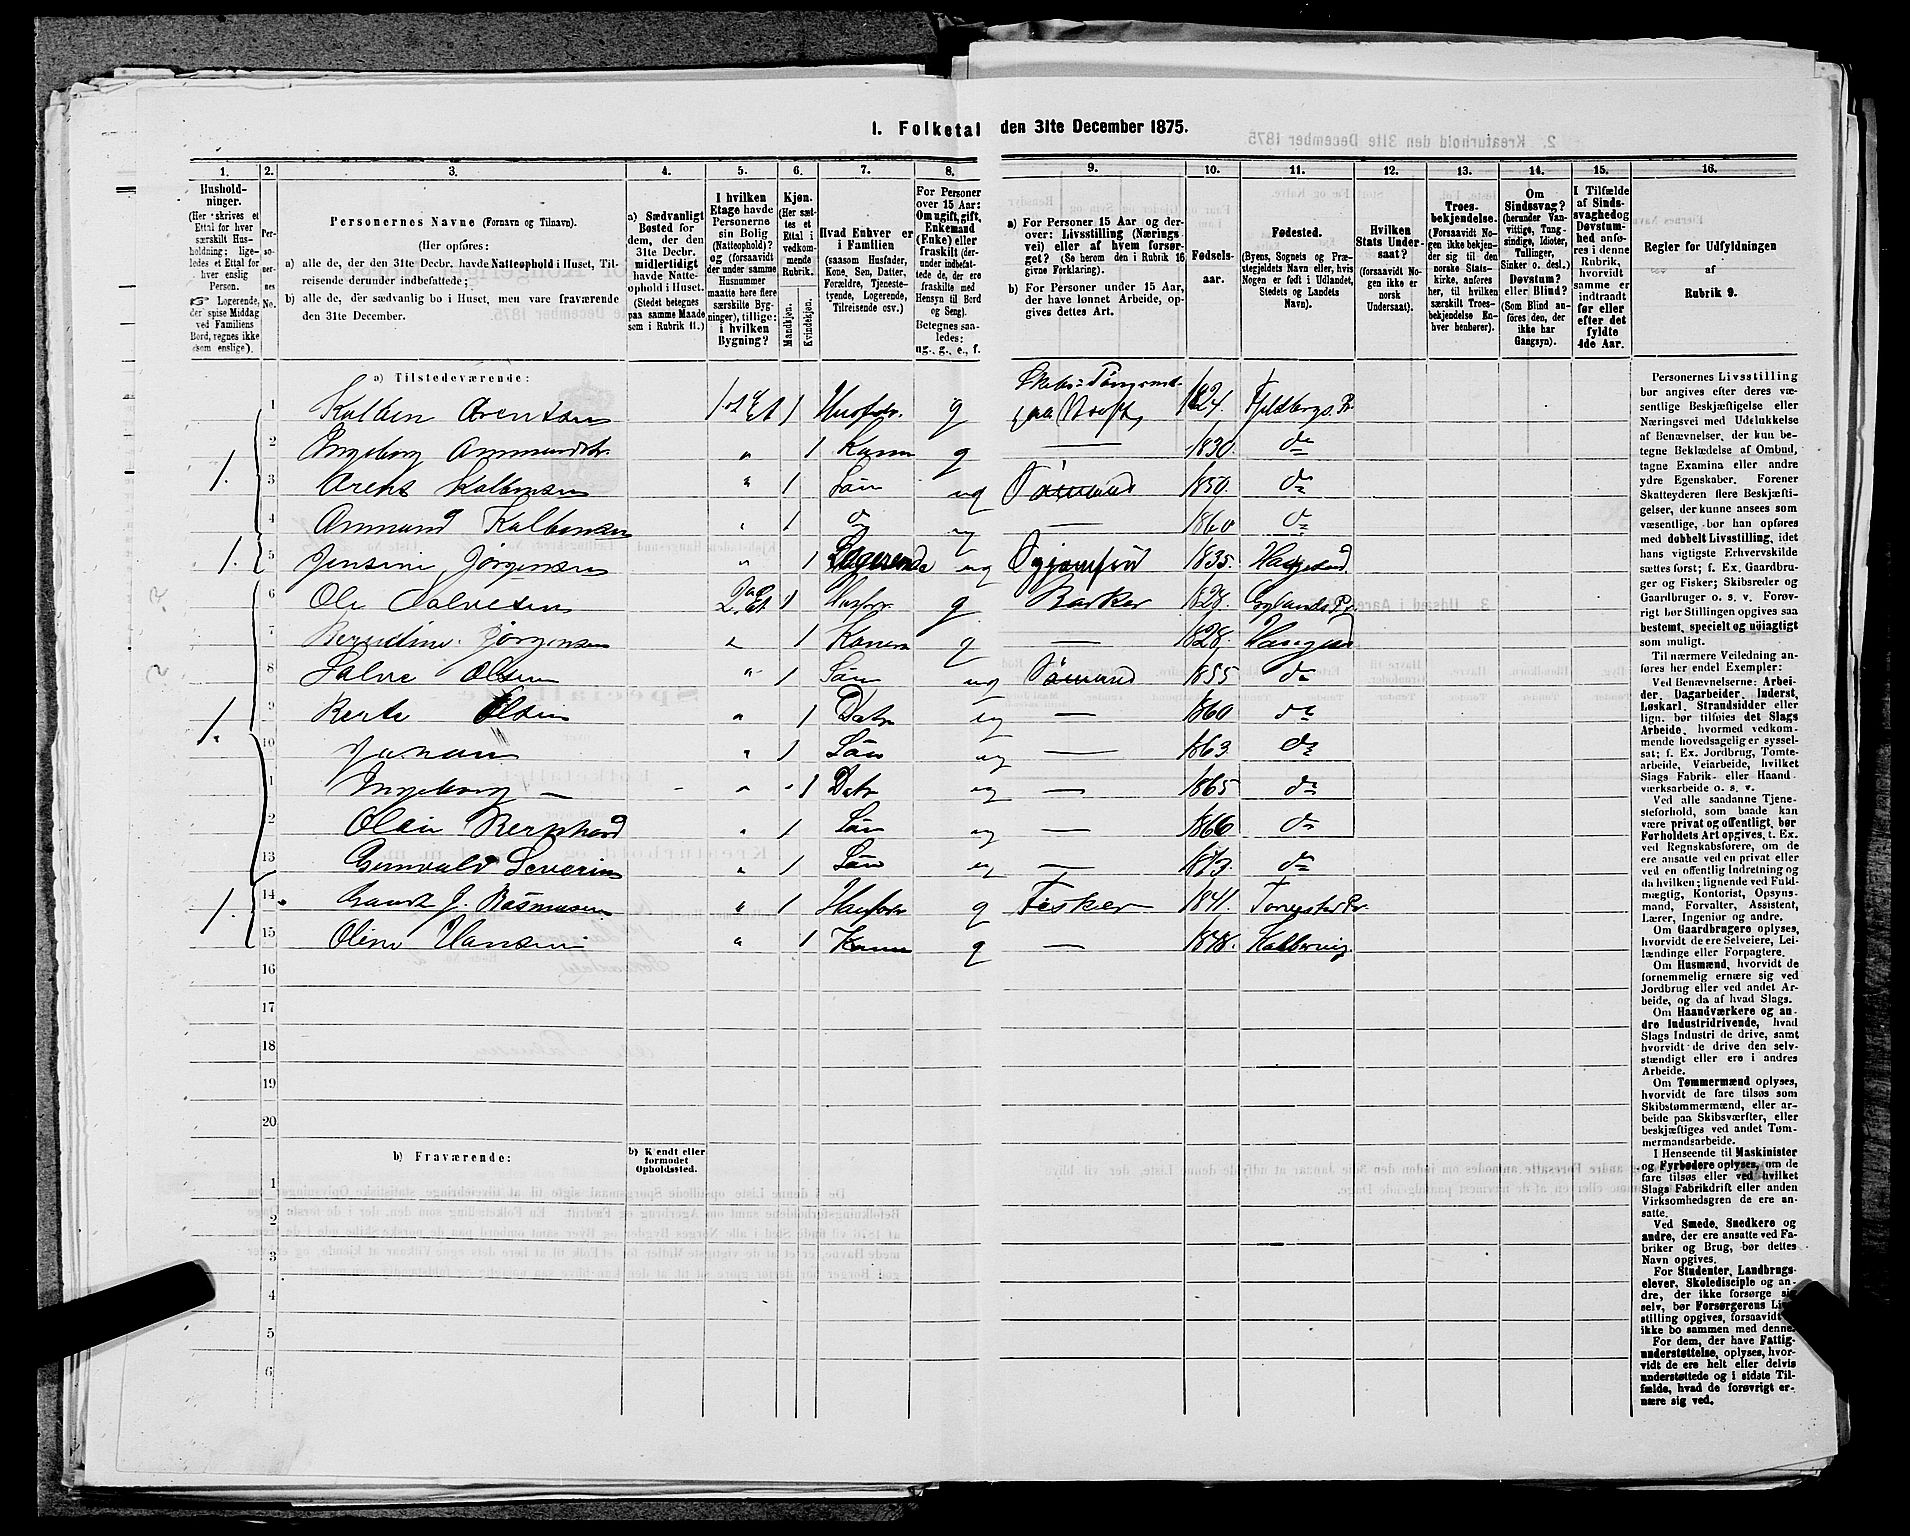 1. Folketal den 31te December 1875.
1. 2. 3. 4. 5. 6. 7. 8. 9. 10. 11. 12. 13. 14. 15. 16.
Hushold-
ninger.
(Her skrives et
Ettal for hver
særskilt Hus-
holdning; lige-
ledes et Ettal for
hver enslig
Person.
Logerende,
der spise Middag
ved Familiens
Bord, regnes ikke
som enslige).
Per-
so-
ner-
nes
No.
Personernes Navne (Fornavn og Tilnavn).
(Her opføres:
a) alle de, der den 31te Decbr. havde Natteophold i Huset, Til-
reisende derunder indbefattede;
b) alle de, der sædvanlig bo i Huset, men vare fraværende
den 31te December.
a) Sædvanligt
Bosted for
dem, der den
31te Decbr.
midlertidigt
havde Natte-
ophold i Huset.
(Stedet betegnes
paa samme Maade
som i Rubrik 11.)
I hvilken
Etage havde
Personerne
sin Bolig
(Natteophold)?
og (forsaavidt
der under samme
Husnummer
maatte høre flere
særskilte Byg-
ninger), tillige:
i hvilken
Bygning?
Kjøn.
(Her sæt-
tes et
Ettal i
vedkom-
mende
Rubrik.
Mandkjøn.
Kvindekjøn.
Hvad Enhver er
i Familien
(saasom Husfader,
Kone, Søn, Datter,
Forældre, Tjeneste-
tyende, Logerende,
Tilreisende osv.)
For
Personer
over 15 Aar:
Om ugift, gift,
Enkemand
(Enke) eller
fraskilt (der-
under indbefat-
tede de, der ere
fraskilte med
Hensyn til Bord
og Seng).
Betegnes saa-
ledes:
ug., g., e., f.
a) For Personer 15 Aar og der-
over: Livsstilling (Nærings-
vei) eller af hvem forsør-
get? (Se herom den i Rubrik 16
givne Forklaring).
b) For Personer under 15 Aar,
der have lønnet Arbeide, op-
gives dettes Art.
Fødsels-
aar.
Fødested.
(Byens, Sognets og Præ-
stegjeldets Navn eller, hvis
Nogen er født i Udlandet,
Stedets og Landets
Navn).
Hvilken
Stats Under-
saat?
(forsaavidt No-
gen ikke er
norsk
Undersaat).
Troes-
bekjendelse.
(Forsaavidt No-
gen ikke bekjen-
der sig til den
norske Stats-
kirke, anføres
her, til hvilken
særskilt Troes-
bekjendelse En-
hver henhører).
Om
Sindssvag?
(herunder Van-
vittige, Tung-
sindige, Idioter,
Tullinger,
Sinker o. desl.)
Døvstum?
eller Blind?
(Som Blind an-
føres den, der
ikke har
Gangsyn).
I Tilfælde
af Sinds-
svaghed og
Døvstum-
hed anfø-
res i denne
Rubrik,
hvorvidt
samme er
indtraadt
før eller
efter det
fyldte
4de Aar.
Regler for Udfyldningen
af
Rubrik 9.
a) Tilstedeværende:
1 Husfader g paa 1824.
1. 2 Ingeborg „ 1 Kone g — 1830. do
3 „ 1 Søn ug Sømand 1850. do
4 Ommund „ 1 do ug — 1860. do
1. 5 Jensine Jørgensen „ 1 Logerende ug 1835.
6 Ole Salvesen 1 Husfdr. g 1828.
7 Berentine Jørgensen „ 1 Konen g — 1828.
8 Salve Olsen „ 1 Søn ug Sømand 1855 do
1. 9 Berte Olsen „ 1 Datr ug — 1860 do
10 Johan „ 1 Søn ug — 1863 do
1 Ingeborg — „ 1 Datr ug — 1865 do
2 Olai Bernhard „ 1 Søn ug — 1866 do
13 Gunvald Severin „ 1 Søn ug — 1873. do
1. 14 J. Rasmussen „ 1 Husfader g Fisker 1841.
15 Oline Hansen „ 1 Kone g — 1848.
16
17
18
19
20
b) Fraværende:
b) Kjendt eller
formodet
Opholdssted.
1
2
3
4
5
6
Personernes Livsstilling
bør angives efter deres væ-
sentlige Beskjæftigelse eller
Næringsvei med Udelukkelse
af Benævnelser, der kun be-
tegne Beklædelse af Ombud,
tagne Examina eller andre
ydre Egenskaber. Forener
Skatteyderen flere Beskjæfti-
gelser, der kunne ansees som
væsentlige, bør han opføres
med dobbelt Livsstilling, idet
hans vigtigste Erhvervskilde
sættes først; f. Ex. Gaardbru-
ger og Fisker; Skibsreder og
Gaardbruger o. s. v. Forøv-
rigt bør Stillingen opgives saa
bestemt, specielt og nøiagtigt
som muligt.
Til nærmere Veiledning an-
føres her endel Exempler:
Ved Benævnelserne: Arbei-
der, Dagarbeider, Inderst,
Løskarl, Strandsidder eller
lign. bør tilføies det Slags
Arbeide, hvormed vedkom-
mende hovedsagelig er syssel-
sat; f. Ex. Jordbrug, Tomte-
arbeide, Veiarbeide, hvilket
Slags Fabrik- eller Haand-
værksarbeide o. s. v.
Ved alle saadanne Tjene-
steforhold, som baade kan
være privat og offentligt, bør
Forholdets Art opgives, t. Ex.
ved Regnskabsførere, om de
ere ansatte ved en privat eller
ved en offentlig Indretning og
da hvilken; lignende ved Fuld-
mægtig, Kontorist, Opsyns-
mand, Forvalter, Assistent,
Lærer, Ingeniør og andre.
Om Gaardbrugere oplyses,
hvorvidt de ere Selveiere, Lei-
lændinge eller Forpagtere.
Om Husmænd, hvorvidt de
fornemmelig ernære sig ved
Jordbrug eller ved andet Ar-
beide, og da af hvad Slags.
Om Haandværkere og an-
dre Industridrivende, hvad
Slags Industri de drive, samt
hvorvidt de drive den selv-
stændigt eller ere i andres
Arbeide.
Om Tømmermænd oplyses,
hvorvidt de fare tilsøs som
Skibstømmermænd, eller ar-
beide paa Skibsværfter, eller
beskjæftiges ved andet Tøm-
mermandsarbeide.
I Henseende til Maskinister
og Fyrbødere oplyses, om de
fare tilsøs eller ved hvilket
Slags Fabrikdrift eller anden
Virksomhedsgren de ere an-
satte.
Ved Smede, Snedkere og
andre, der ere ansatte ved Fa-
briker og Brug, bør dettes
Navn opgives.
For Studenter, Landbrugs-
elever, Skoledisciple og an-
dre, der ikke forsørge sig
selv, bør Forsørgerens Liv-
stilling opgives, forsaavidt
ikke bo sammen med denne.
For dem, der have Fattig-
understøttelse, oplyses, hvor-
vidt de ere helt eller delvis
understøttede og i sidste Til-
fælde, hvad de forøvrigt er-
nære sig ved.